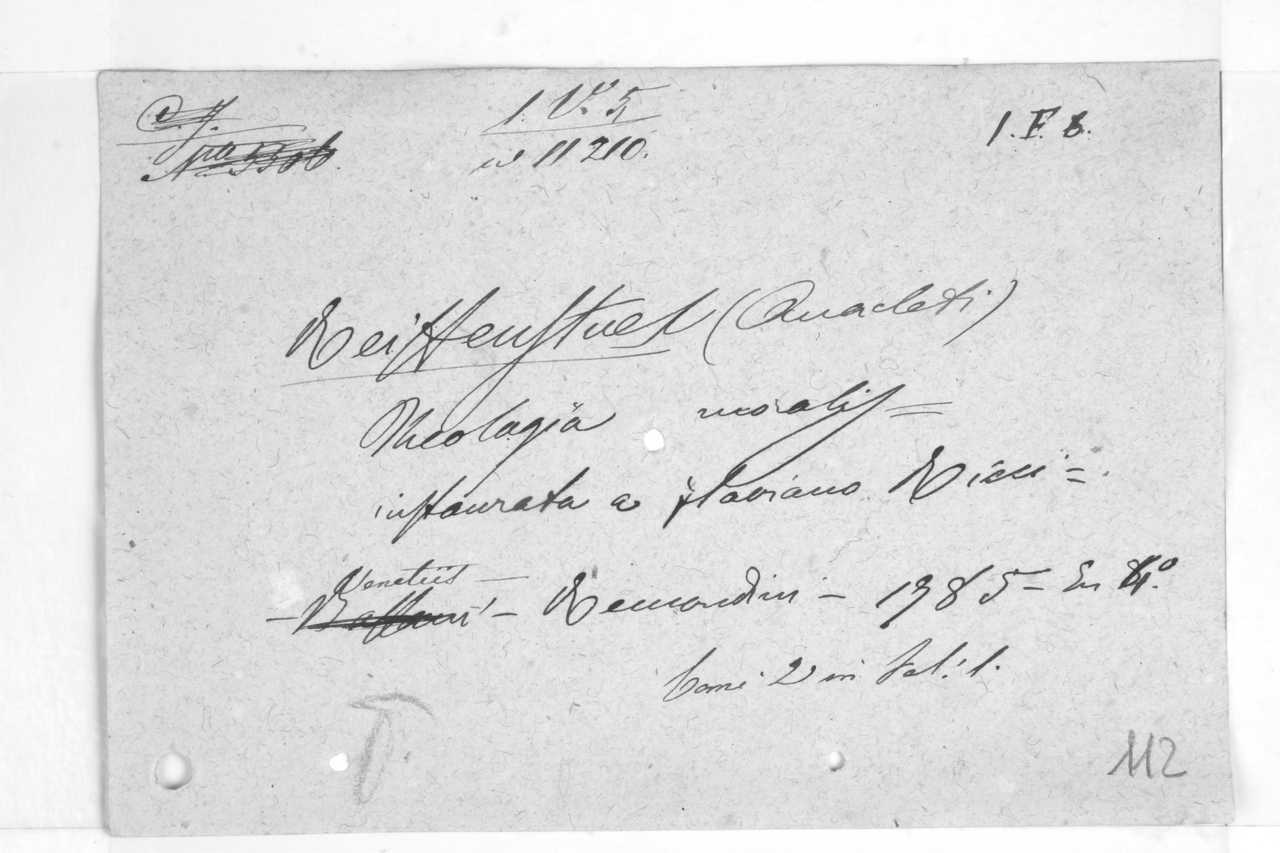 1. V. 5
11210.
1. F. 8.
Reiffenstuel (Anacleti)
Theologia moralis =
instaurata a Flaviano Ricci =
Venetiis —
— Remondini — 1785 = In 4.º
Tomi 2 in Vol: 1.
112